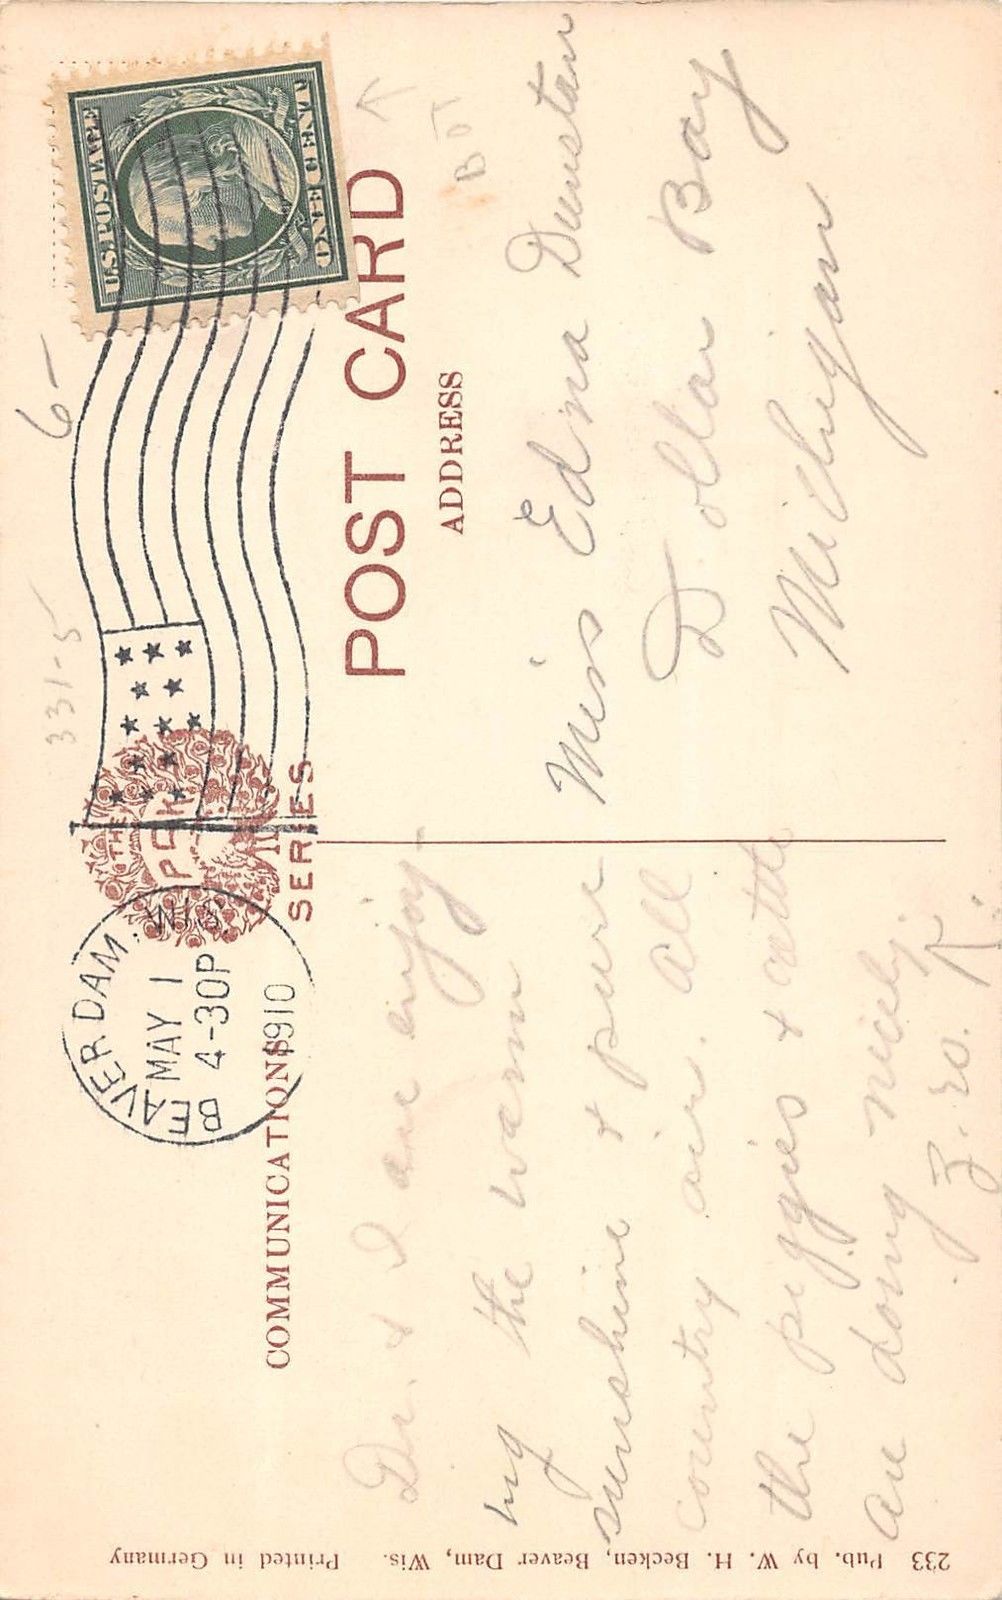 U.S. POSTAGE
ONE CENT
BEAVER DAM, WIS.
MAY 1
4-30P
1910
THE
PCK
SERIES
POST CARD
COMMUNICATIONS
ADDRESS
6-
331-5
B
Dr. & I are enjoy-
ing the warm
sunshine & pure
country air. All
the piggies & cattle
are doing nicely
Miss Edna Dunstan
Dollar Bay
Michigan
233 Pub. by W. H. Becken, Beaver Dam, Wis. Printed in Germany